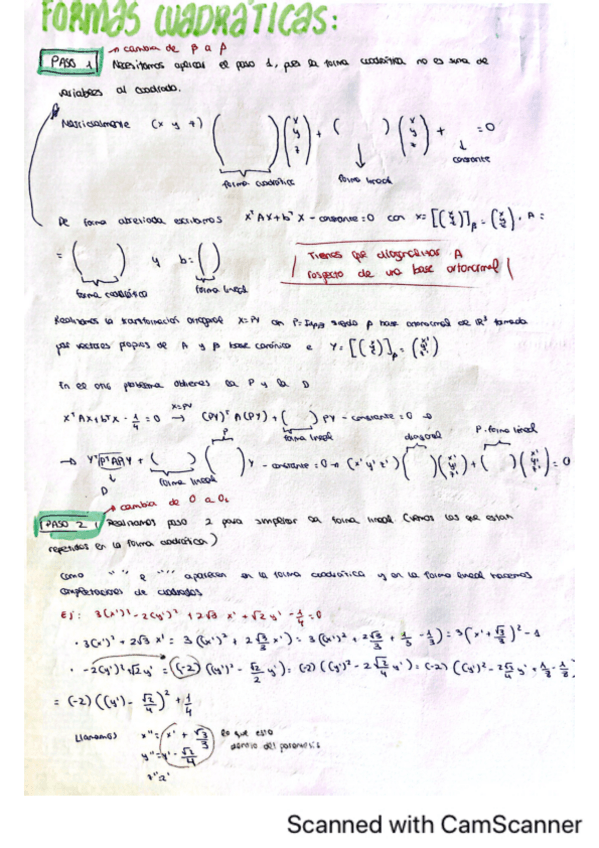 FORMAS CUADRÁTICAS:
→ cambia de β a β
PASO 1 Necesitamos aplicar el paso 1, pues la forma cuadrática no es suma de
variables al cuadrado.
Matricialmente (x y z) ( ) (x y z) + ( ) (x y z) + = 0
forma cuadrática forma lineal constante
De forma abreviada escribimos XᵀAX + bᵀX - constante = 0 con X = [(x y z)]β = (x y z), A =
= ( ) y b = ( )
forma cuadrática forma lineal
Tienes que diagonalizar A
respecto de una base ortonormal
Realizamos la transformación ortogonal X = PY con P = siendo β base ortonormal de ℝ³ formada
por vectores propios de A y β base canónica e Y = [(x y z)]β = (x' y' z')
En es otro problema obtienes la P y la D
XᵀAX + bᵀX - 1/4 = 0 →(X=PY) (PY)ᵀA(PY) + ( ) PY - constante = 0 →
forma lineal diagonal P·forma lineal
→ YᵀPᵀAPY + ( ) ( ) Y - constante = 0 → (x' y' z') ( ) (x' y' z') + ( ) (x' y' z') = 0
D forma lineal P
→ cambia de O a O₁
PASO 2 Realizamos paso 2 para simplificar la forma lineal (vemos las que están
repetidas en la forma cuadrática)
Como " " e " " aparecen en la forma cuadrática y en la forma lineal hacemos
completaciones de cuadrados
Ej: 3(x')² - 2(y')² + 2√3 x' + √2 y' - 1/4 = 0
· 3(x')² + 2√3 x' = 3((x')² + 2√3/3 x') = 3((x')² + 2√3/3 + 1/3 - 1/3) = 3(x' + √3/3)² - 1
· -2(y')² + √2 y' = (-2)((y')² - √2/2 y') = (-2)((y')² - 2√2/4 y') = (-2)((y')² - 2√2/4 y' + 1/8 - 1/8)
= (-2)((y') - √2/4)² + 1/4
Llamamos x'' = x' + √3/3 lo que está
y'' = y' - √2/4 dentro del paréntesis
z'' z'
Scanned with CamScanner